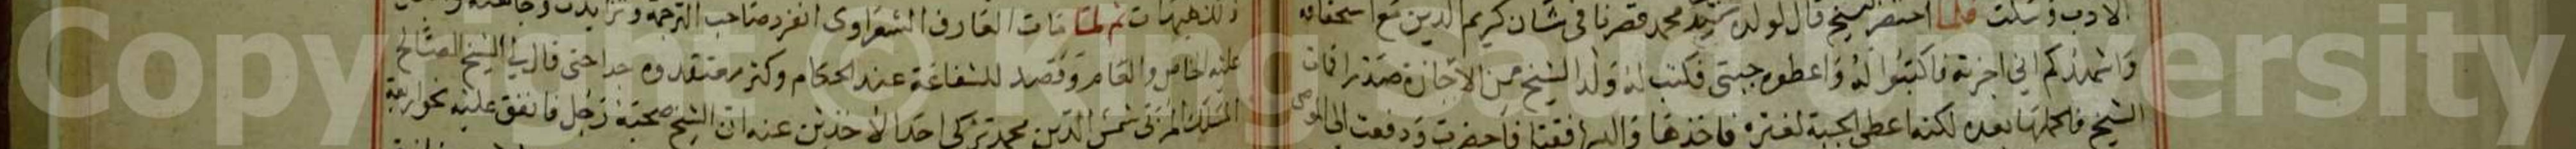 الادب وسكت فلما احتضر الشيخ قال لولده سيدي محمد قصرنا في شان كريم الدين مع استحقاقه
واشهدكم اني اجزته فاكتبوا له واعطوه جبتي فكتب له ولد الشيخ من الاجازة صدرا فمات
الشيخ فاكملها بعده لكنه اعطى الجبة لغيره فاخذها فاحضرت ودفعت الى
ثم لما مات العارف الشعراوي انفرد صاحب الترجمة وتزايدت وجاهته
عليه الخاص والعام وقصد للشفاعة عند الحكام وكثر معتقدوه جدا حتى قال لي الشيخ الصالح
المسلك المربي شمس الدين محمد تركي احد الاخذين عنه ان الشيخ صحبه رجل فانفق عليه نحو اربعة
Copyright © King Saud University